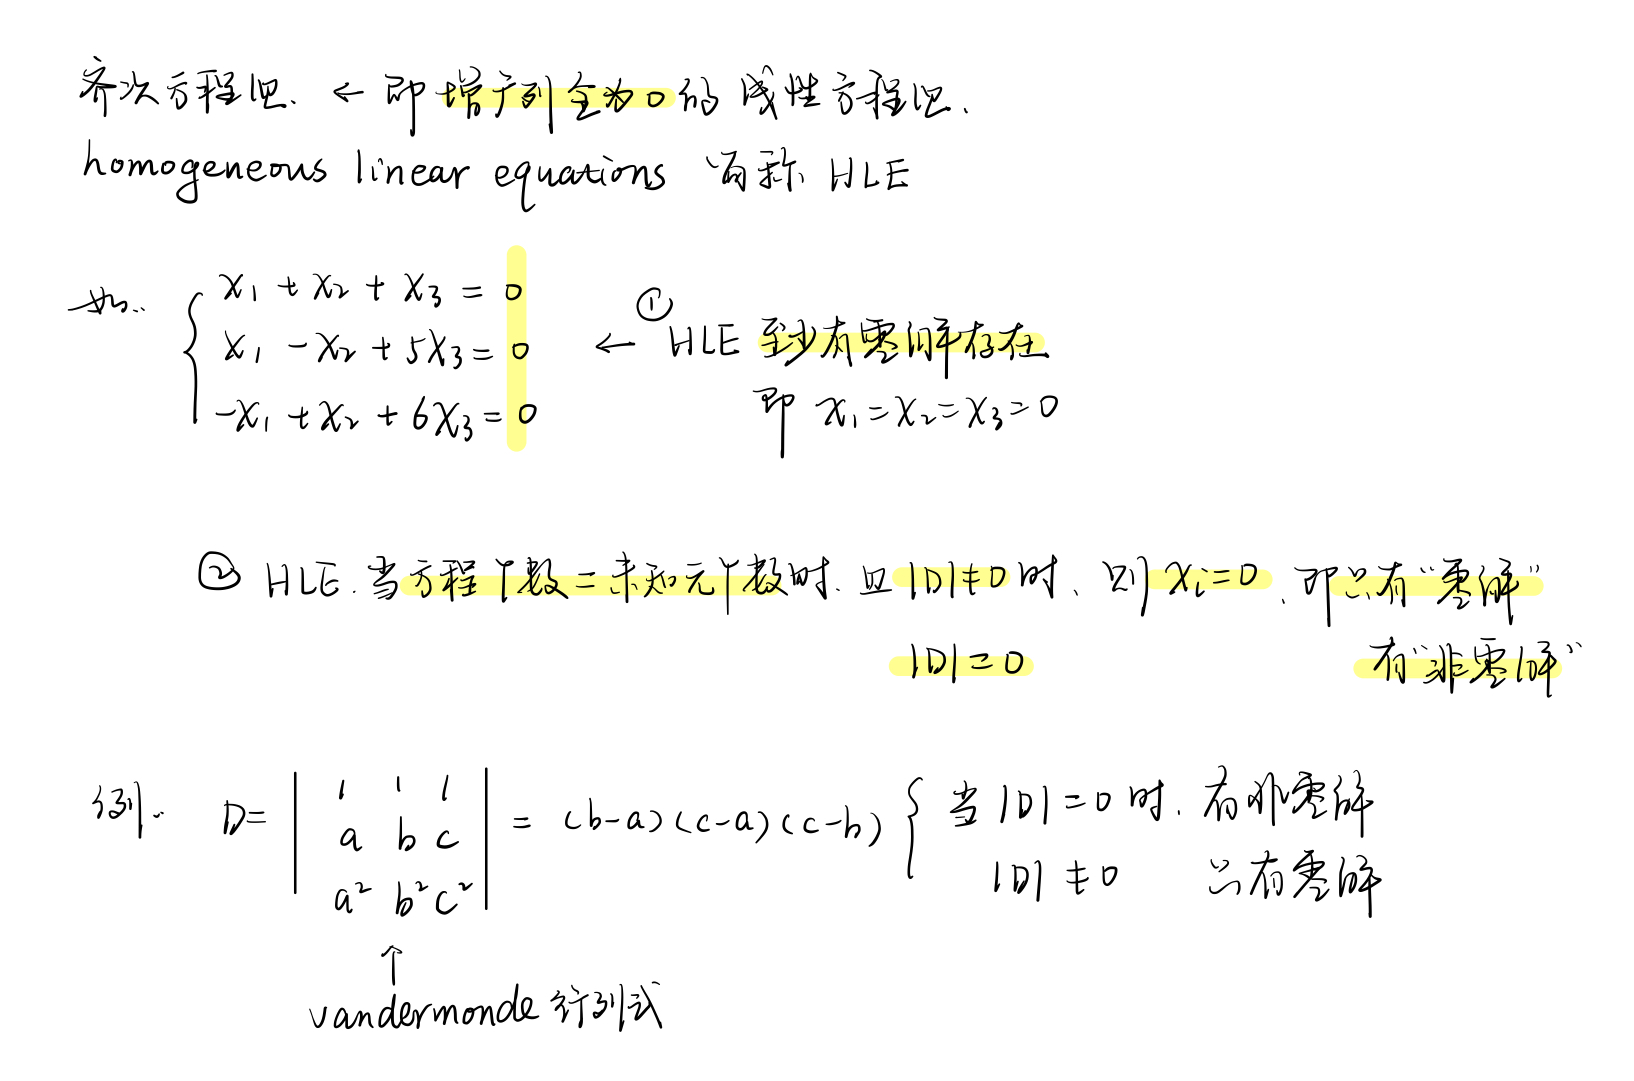 齐次方程组. ← 即增广列全为0的线性方程组.
homogeneous linear equations 简称 HLE
如:
x₁ + x₂ + x₃ = 0
x₁ - x₂ + 5x₃ = 0
-x₁ + x₂ + 6x₃ = 0
← ① HLE 至少有零解存在
即 x₁ = x₂ = x₃ = 0
② HLE. 当方程个数 = 未知元个数时. 且 |D| ≠ 0 时、则 xᵢ = 0 、即只有“零解”
|D| = 0 有“非零解”
例:
D = | 1 1 1 |
| a b c |
| a² b² c² |
= (b-a)(c-a)(c-b) { 当 |D| = 0 时. 有非零解
|D| ≠ 0 只有零解
↑
vandermonde 行列式